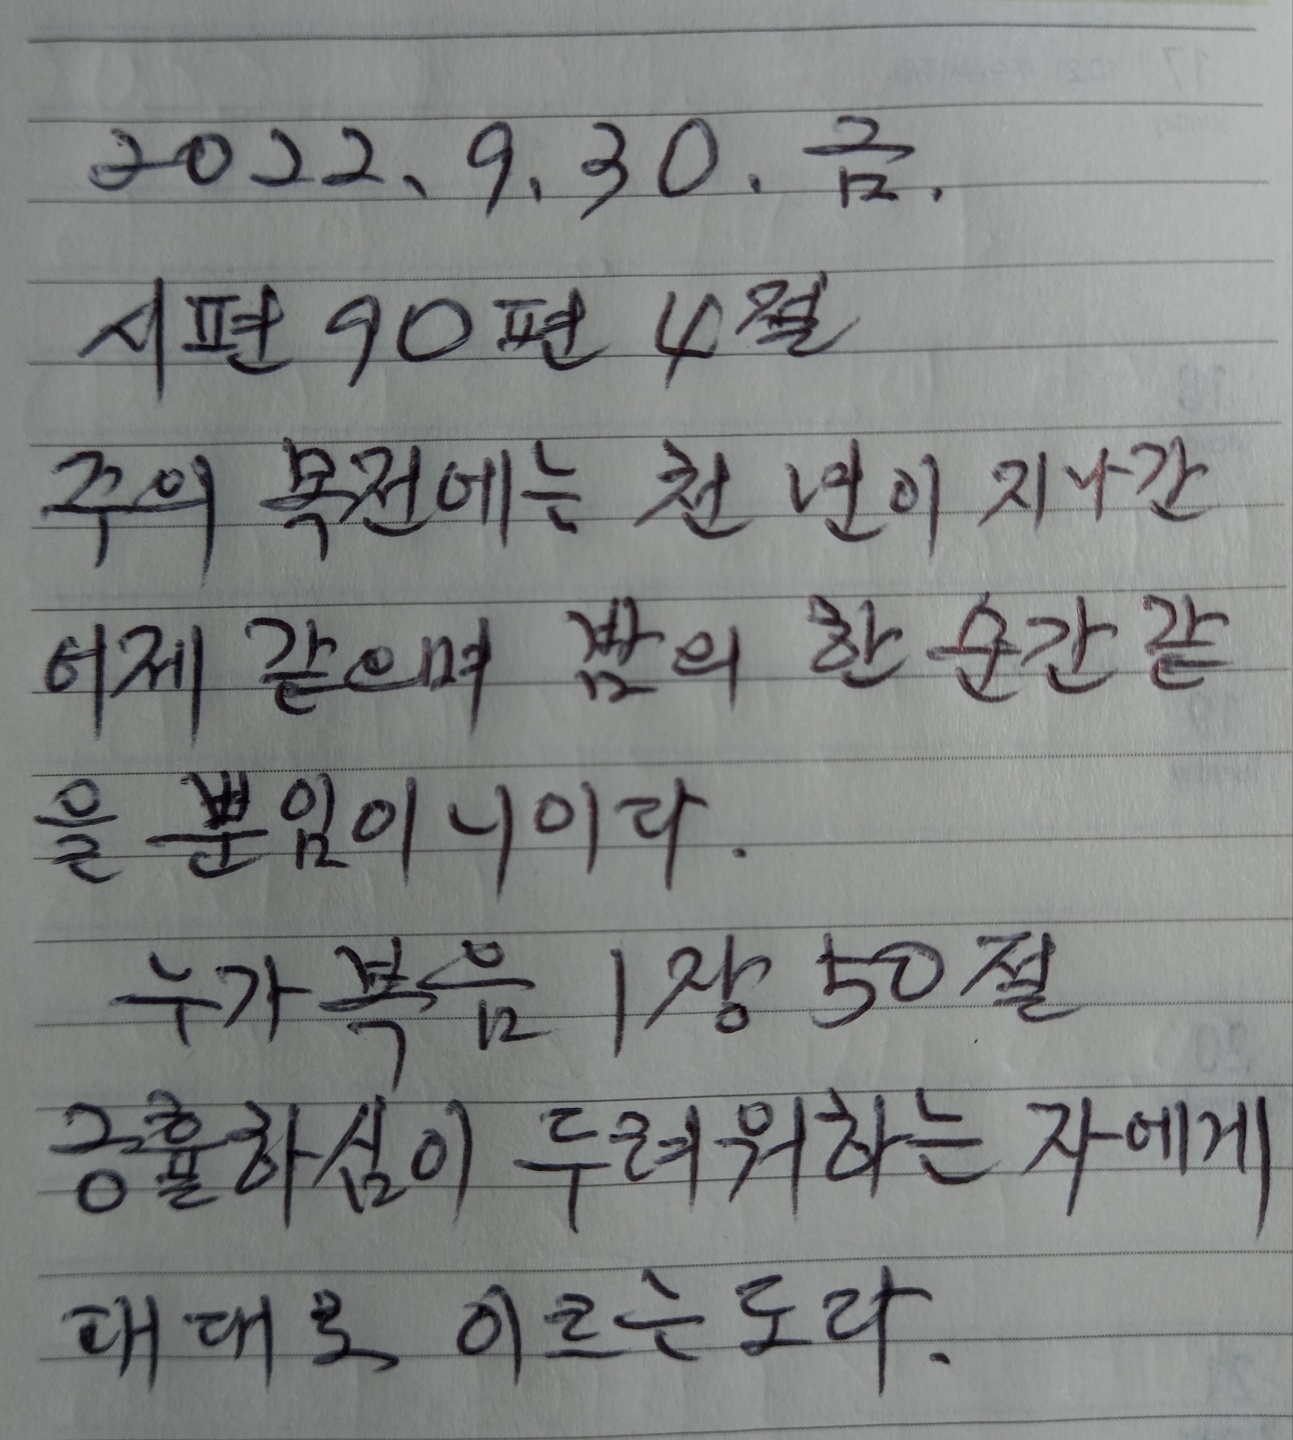 2022. 9. 30. 금.
시편 90편 4절
주의 목전에는 천 년이 지나간
어제 같으며 밤의 한 순간 같
을 뿐임이니이다.
누가복음 1장 50절
긍휼하심이 두려워하는 자에게
대대로 이르는도다.